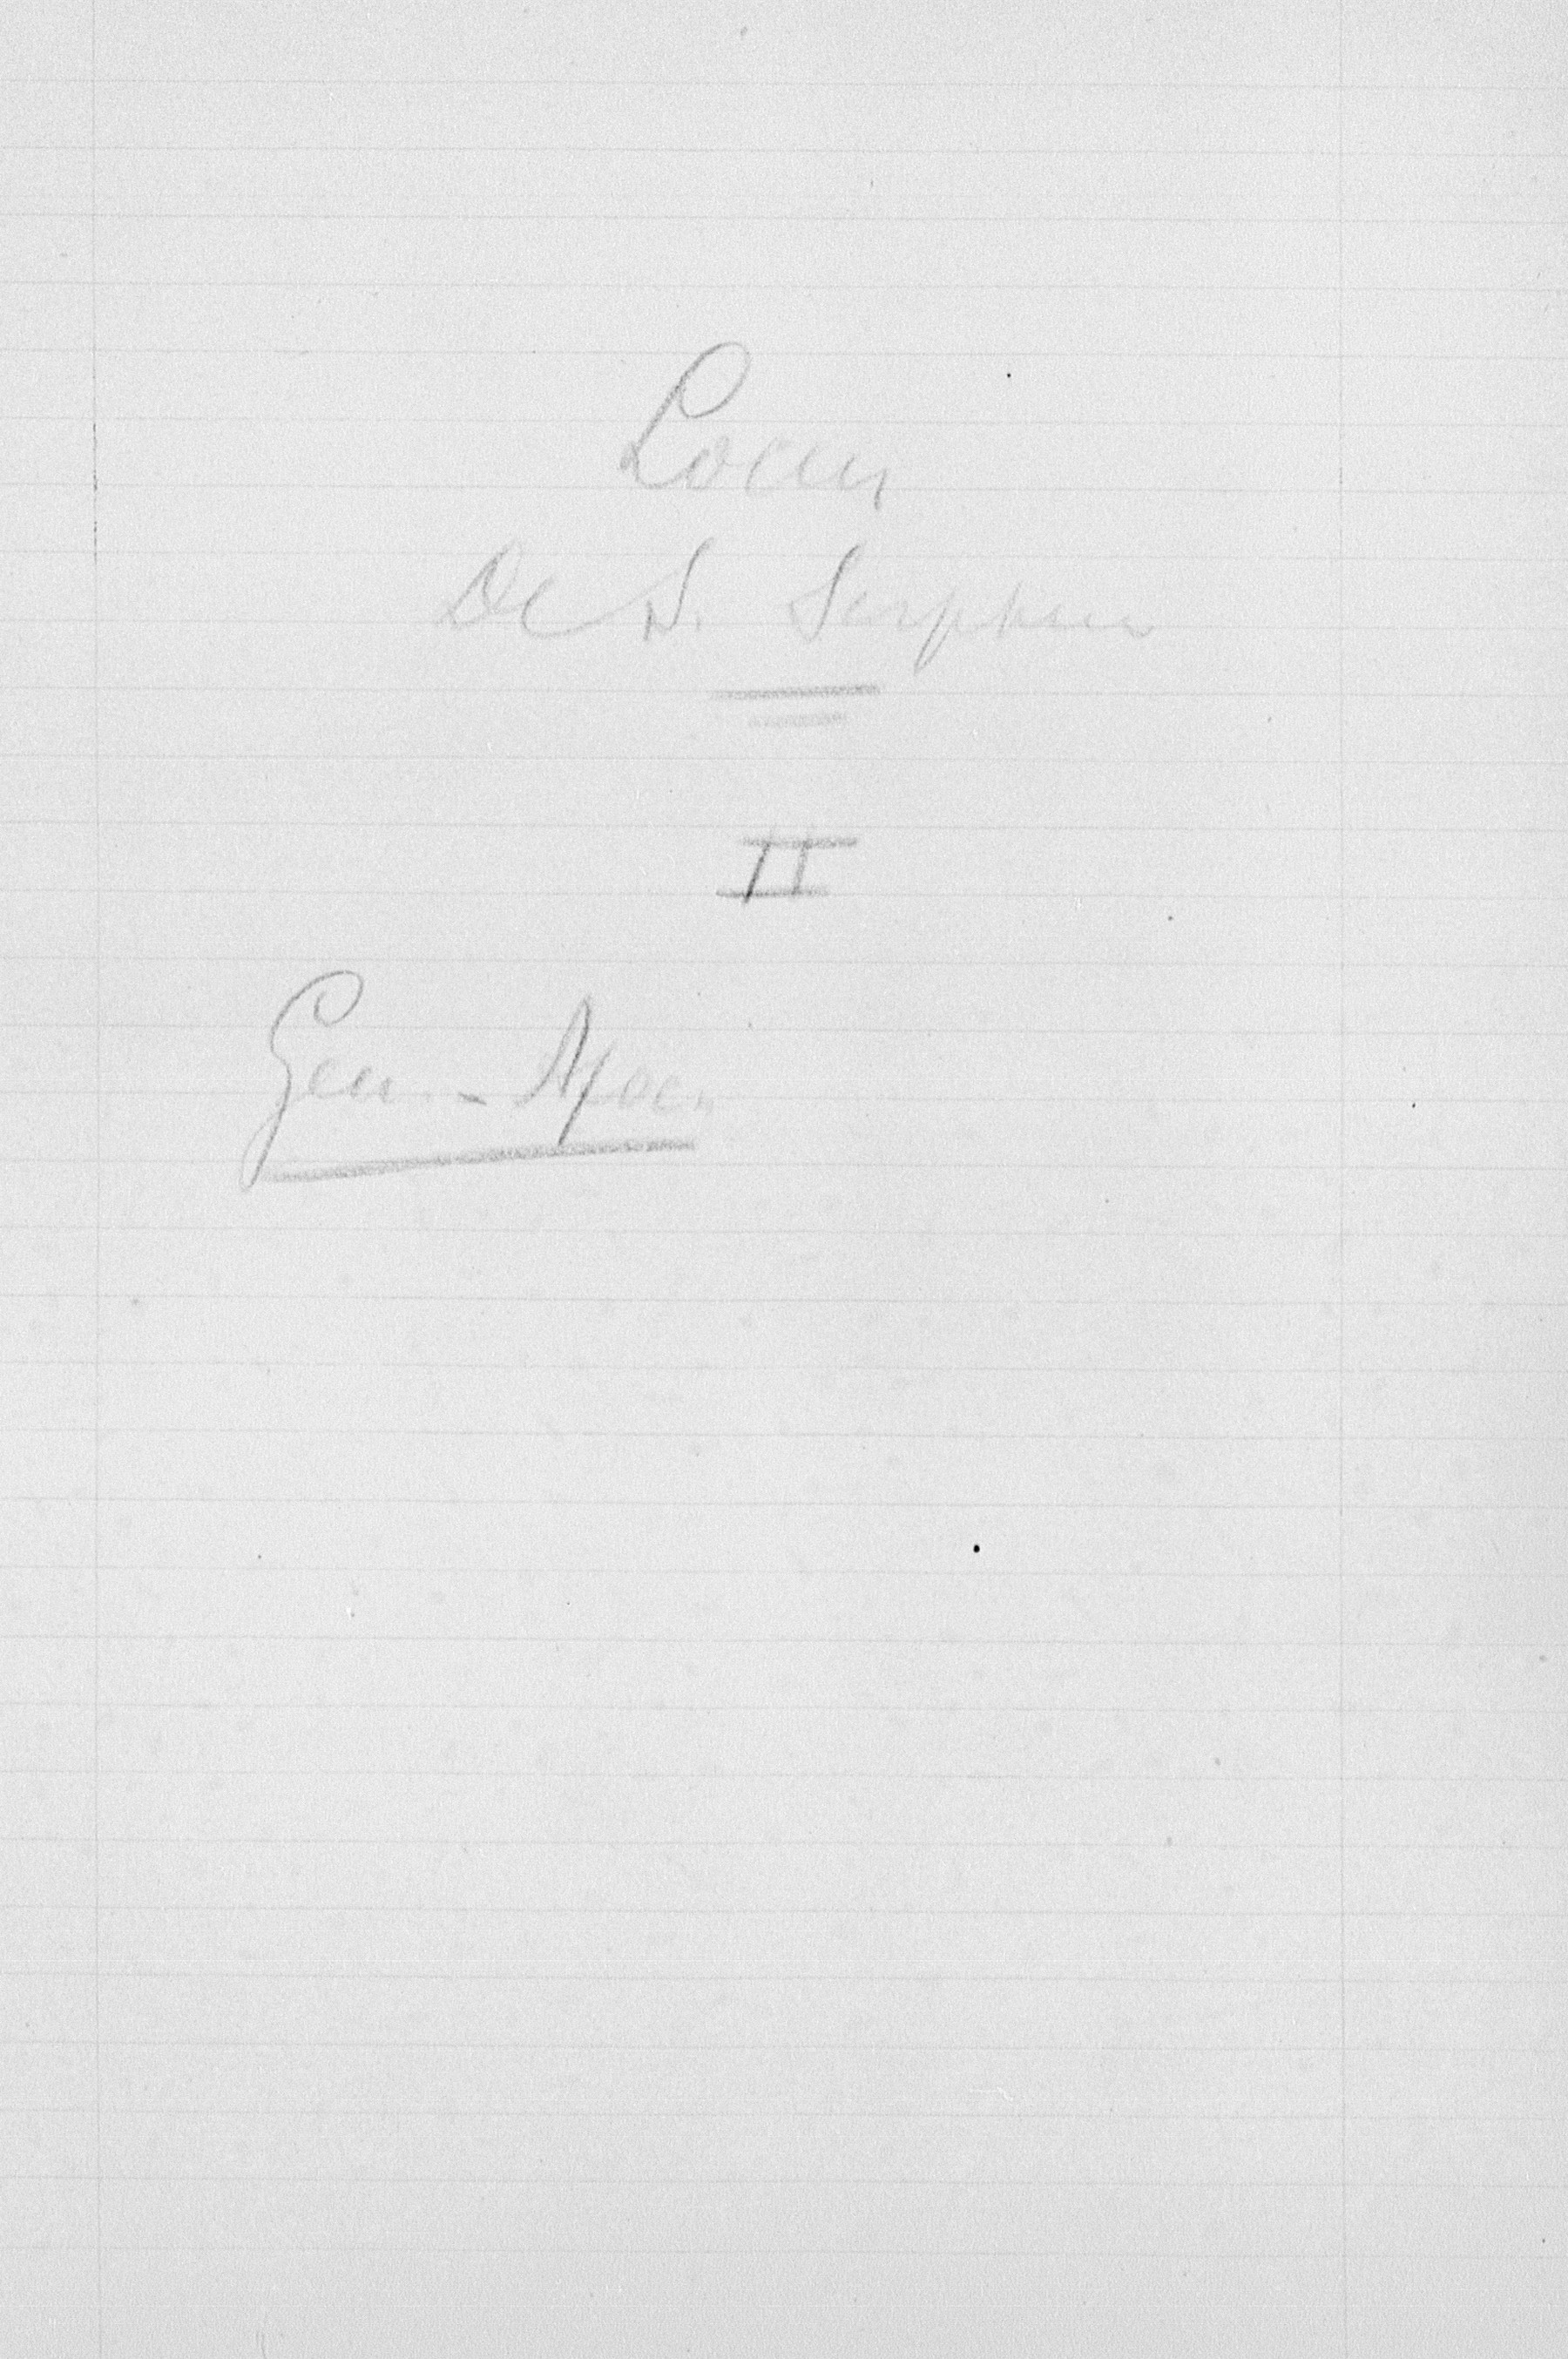 Locus
De S. Scriptura
II
Gen. - Apoc.